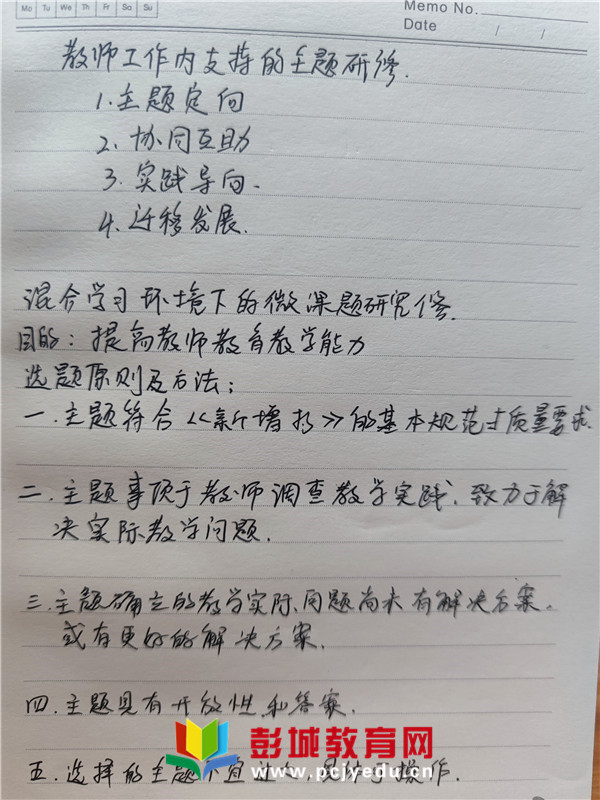 Mo Tu We Th Fr Sa Su
Memo No.
Date / /
教师工作内支持的主题研修.
1.主题定向
2.协同互助
3.实践导向.
4.迁移发展.
混合学习环境下的微课题研究修.
目的:提高教师教育教学能力
选题原则及方法;
一.主题符合《新增 》的基本规范 质量要求.
二.主题事 于教师调查教学实践.致力于解
决实际教学问题.
三.主题确立的教学实际、问题尚未有解决方案.
或有更好的解决方案.
四.主题具有开放性 和答案.
五.选择的主题不宜 操作.
彭城教育网
www.pcjyedu.cn